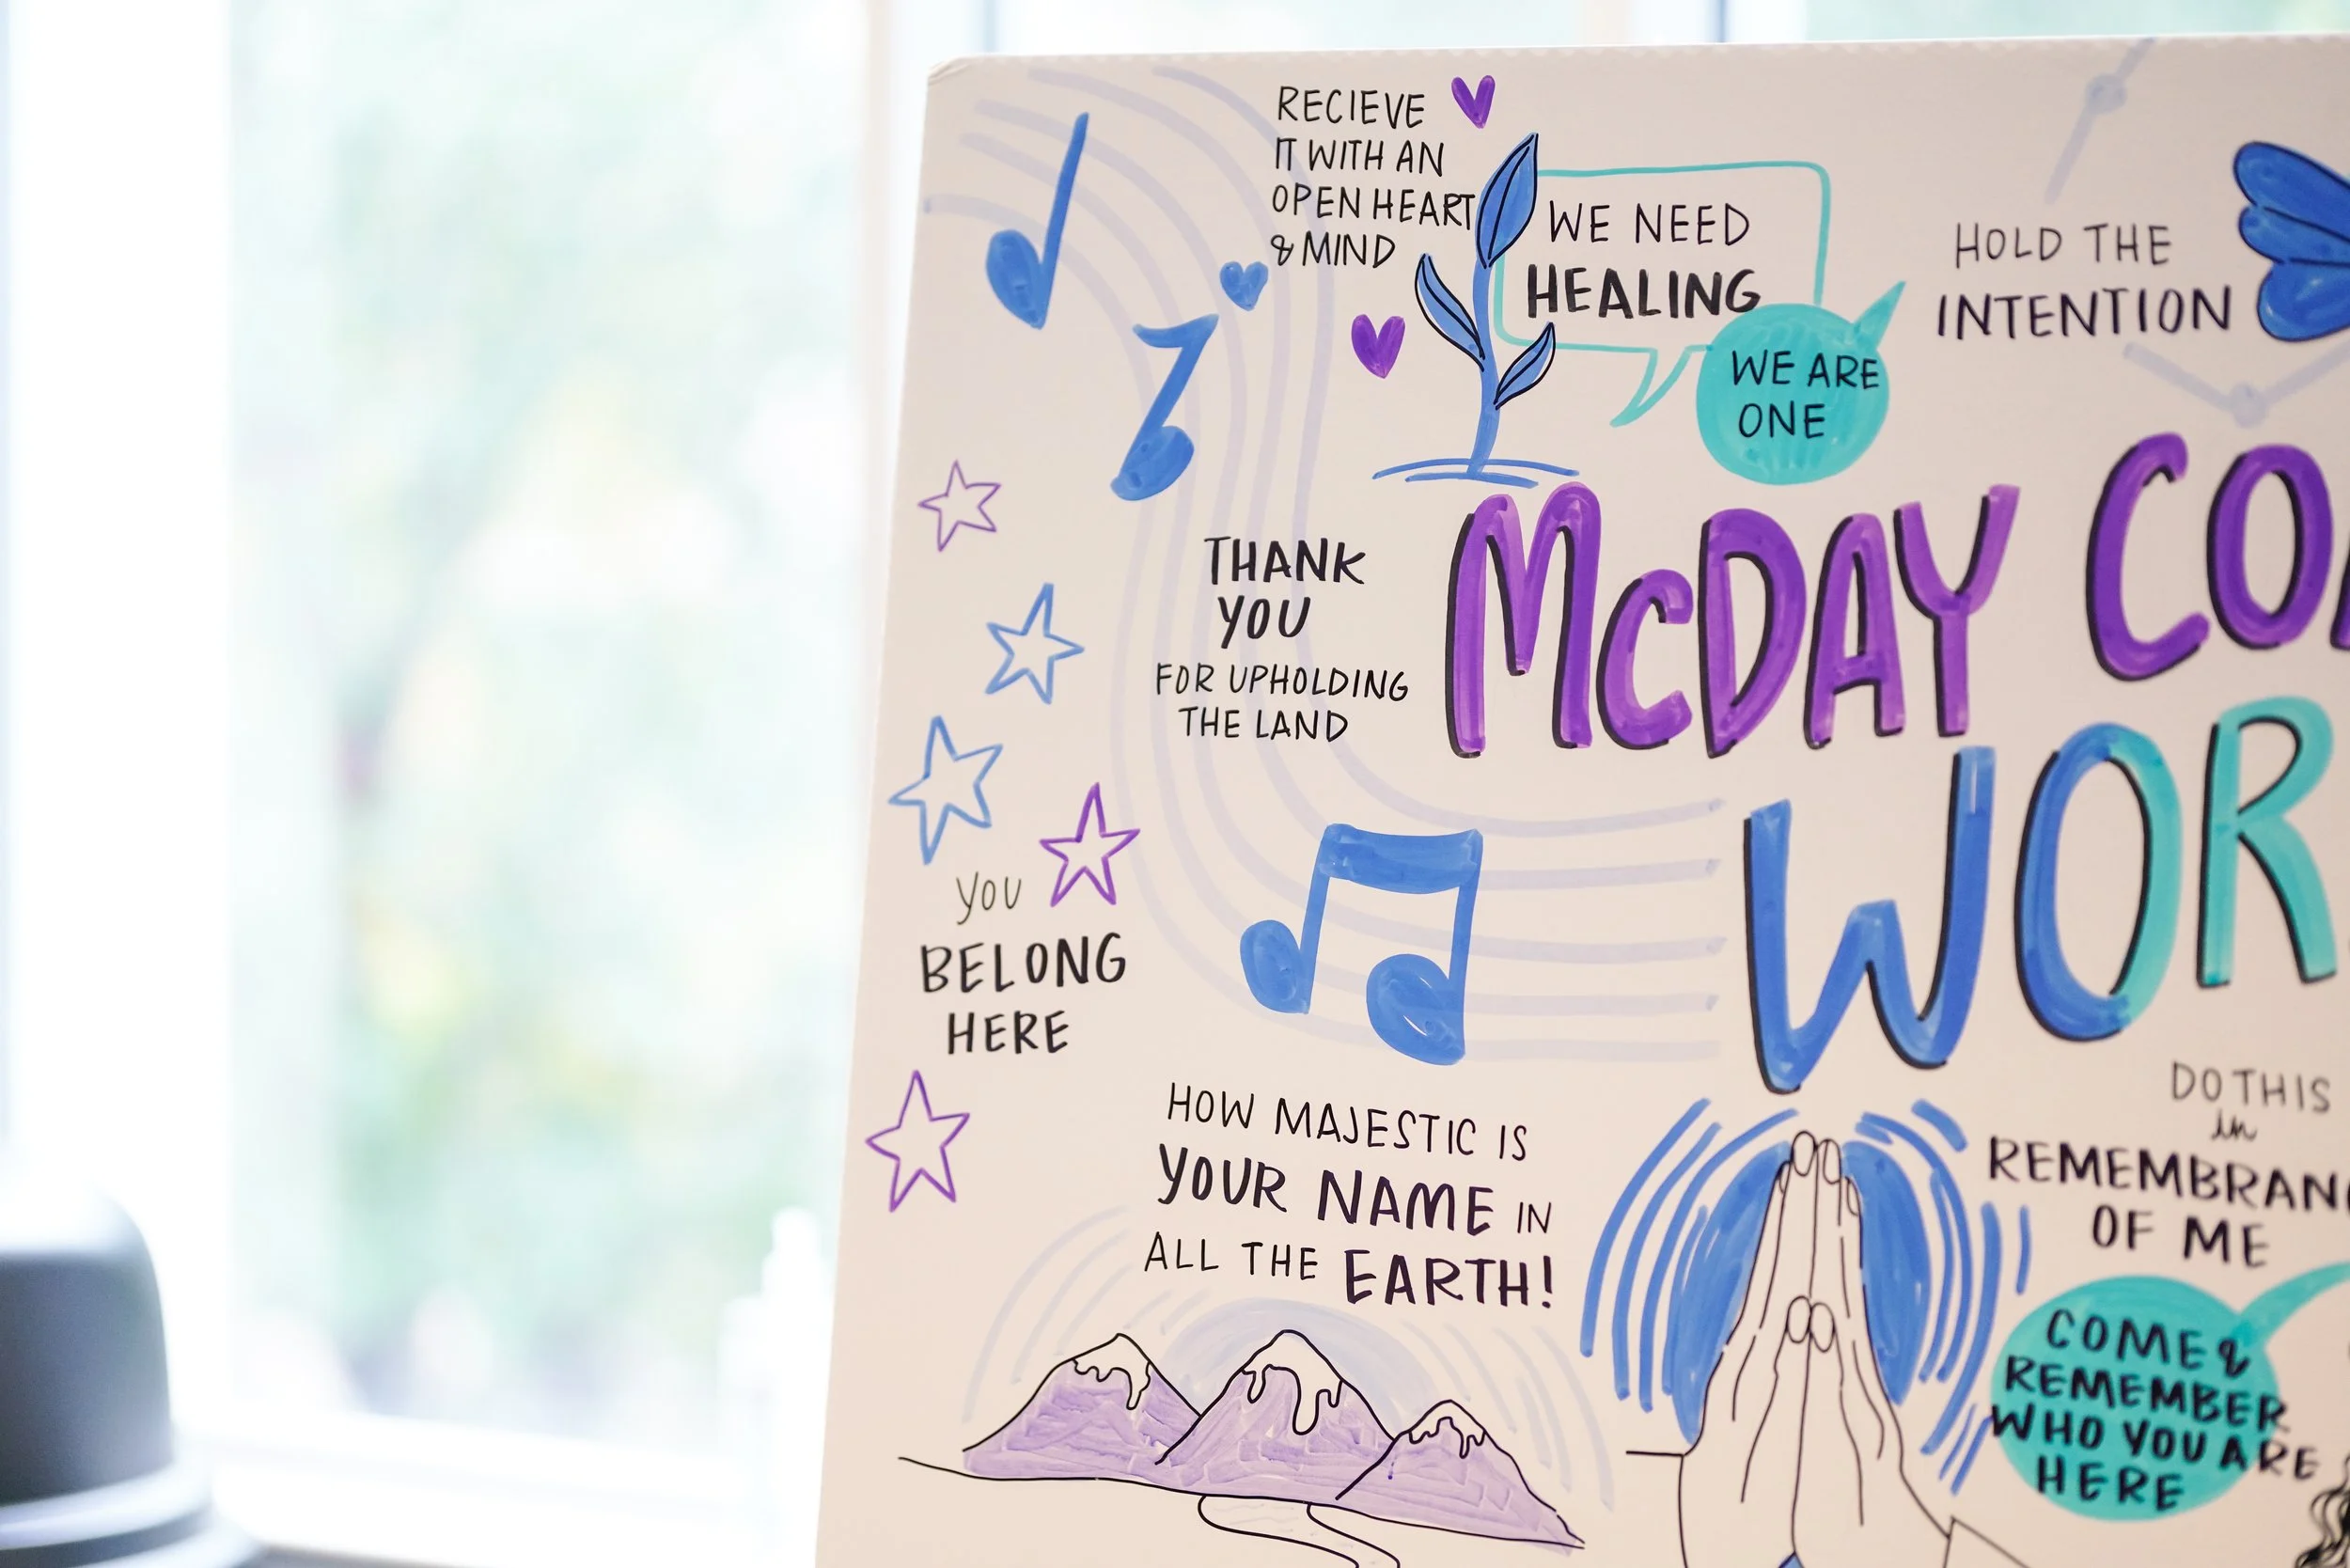 RECIEVE
IT WITH AN
OPEN HEART
& MIND
WE NEED
HEALING
WE ARE
ONE
HOLD THE
INTENTION
THANK
YOU
FOR UPHOLDING
THE LAND
McDAY CO
WOR
YOU
BELONG
HERE
HOW MAJESTIC IS
YOUR NAME IN
ALL THE EARTH!
DO THIS
in
REMEMBRAN
OF ME
COME &
REMEMBER
WHO YOU ARE
HERE